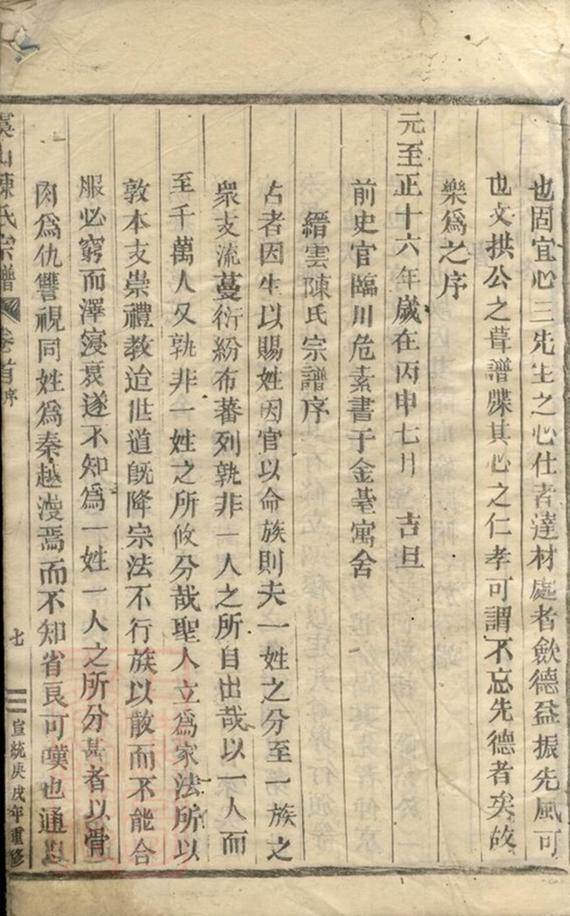 也固宜心三先生之心仕者達材處者斂德益振先風可
也文拱公之葺譜牒其心之仁孝可謂不忘先德者矣故
樂為之序
元至正十六年歲在丙申七月　吉旦
前史官臨川危素書于金臺寓舍
縉雲陳氏宗譜序
古者因生以賜姓因官以命族則夫一姓之分至一族之
衆支流蔓衍紛布蕃列孰非一人之所自出哉以一人而
至千萬人又孰非一姓之所攸分哉聖人立為家法所以
敦本支崇禮教迨世道旣降宗法不行族以散而不能合
服必窮而澤寖衰遂不知為一姓一人之所分甚者以骨
肉為仇讐視同姓為秦越漫焉而不知省良可嘆也通
山陳氏宗譜　卷首　序
七
宣統庚戌年重修